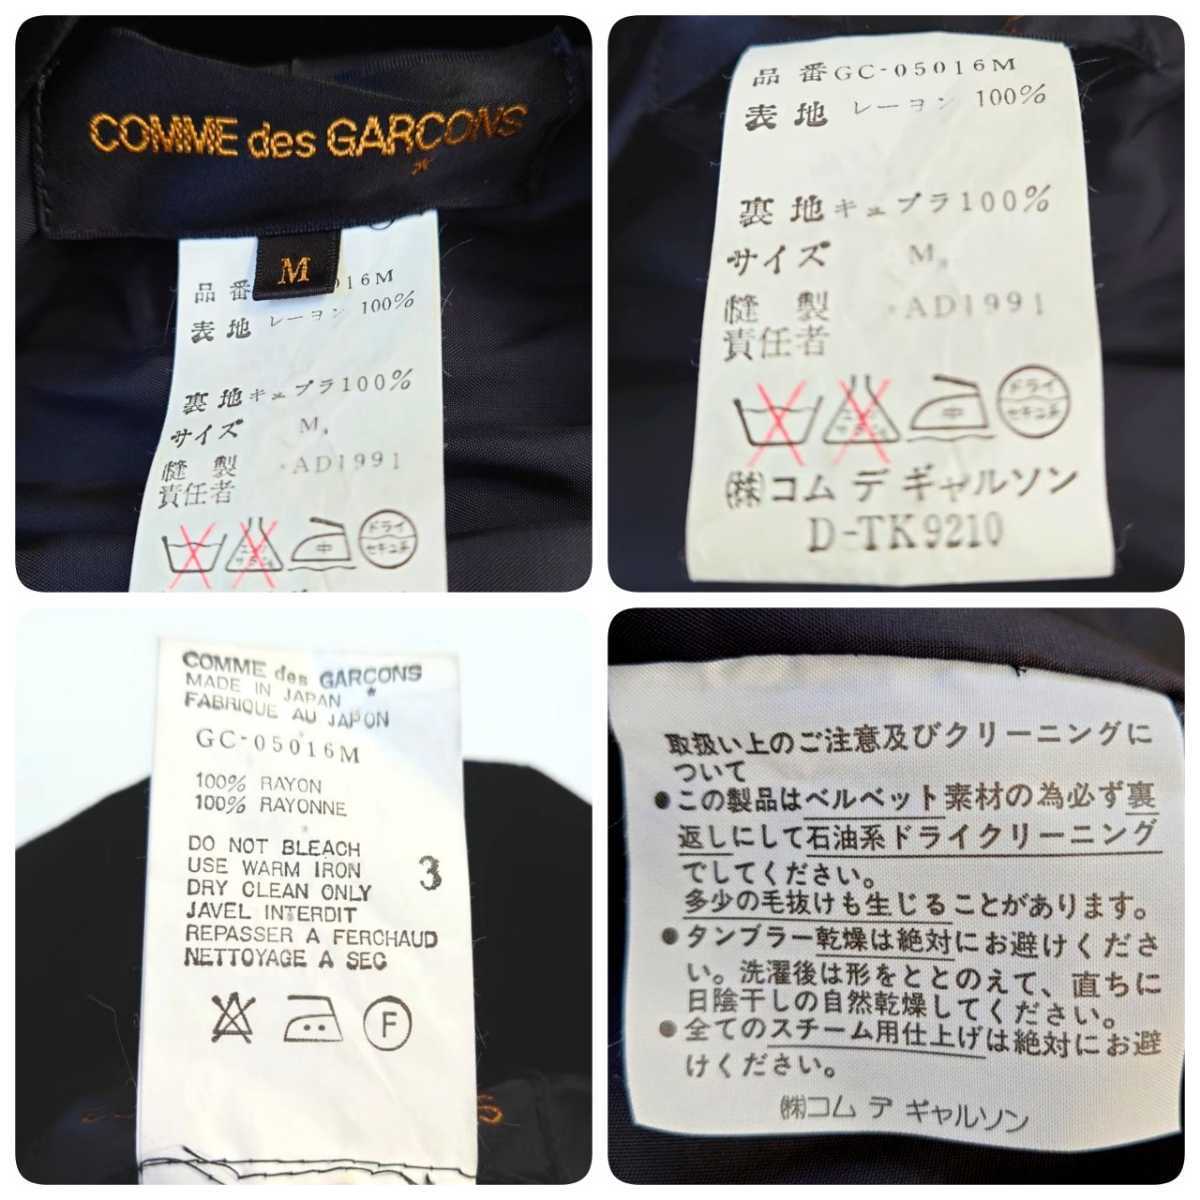 COMME des GARCONS
M
品番 016M
表地 レーヨン 100%
裏地 キュプラ100%
サイズ M
縫製 AD1991
責任者
中
ドライ
セキユ系
品番 GC-05016M
表地 レーヨン 100%
裏地 キュプラ100%
サイズ M
縫製 AD1991
責任者
中
ドライ
セキユ系
㈱コム デ ギャルソン
D-TK9210
COMME des GARCONS
MADE IN JAPAN
FABRIQUE AU JAPON
GC-05016M
100% RAYON
100% RAYONNE
DO NOT BLEACH
USE WARM IRON
DRY CLEAN ONLY
JAVEL INTERDIT
REPASSER A FERCHAUD
NETTOYAGE A SEC
3
F
取扱い上のご注意及びクリーニングに
ついて
●この製品はベルベット素材の為必ず裏
返しにして石油系ドライクリーニング
でしてください。
多少の毛抜けも生じることがあります。
●タンブラー乾燥は絶対にお避けくださ
い。洗濯後は形をととのえて、直ちに
日陰干しの自然乾燥してください。
●全てのスチーム用仕上げは絶対にお避
けください。
㈱コム デ ギャルソン